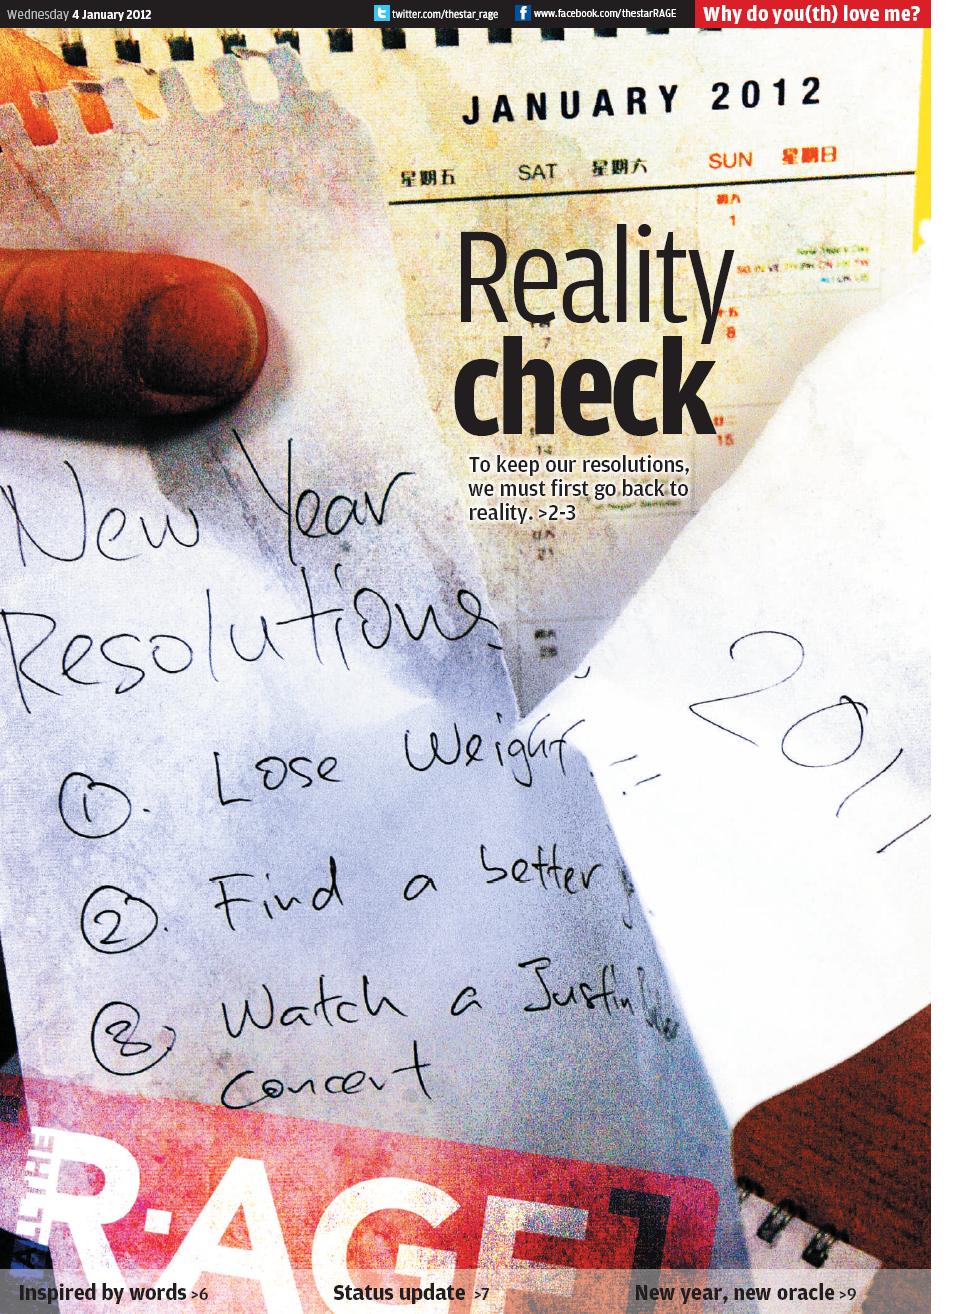 Wednesday 4 January 2012
twitter.com/thestar_rage
www.facebook.com/thestarRAGE
Why do you(th) love me?
JANUARY 2012
星期五 SAT 星期六 SUN 星期日
初八
1
Reality
8
7
check
15
14
To keep our resolutions,
we must first go back to
reality. >2-3
21
28
New Year
Resolutions
2011
1. Lose Weight
2. Find a better
3. Watch a Justin
Concert
R.AGE
Inspired by words >6
Status update >7
New year, new oracle >9